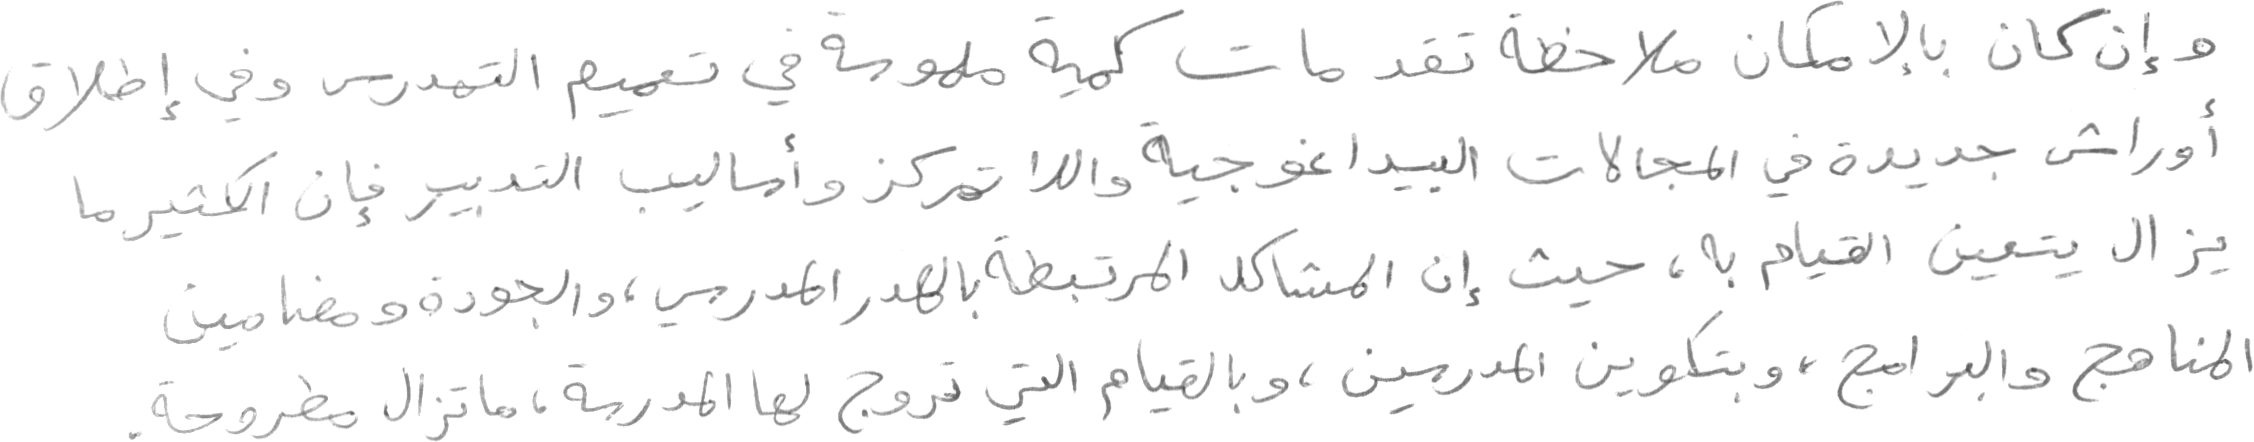 وإن كان بالإمكان ملاحظة تقدمات كمية ملموسة في تعميم التمدرس وفي إطلاق
أوراش جديدة في المجالات البيداغوجية واللاتمركز وأساليب التدبير فإن الكثير ما
يزال يتعين القيام به، حيث إن المشاكل المرتبطة بالهدر المدرسي، والجودة ومضامين
المناهج والبرامج، وبتكوين المدرسين، وبالقيام التي تروج لها المدرسة، ما تزال مطروحة.